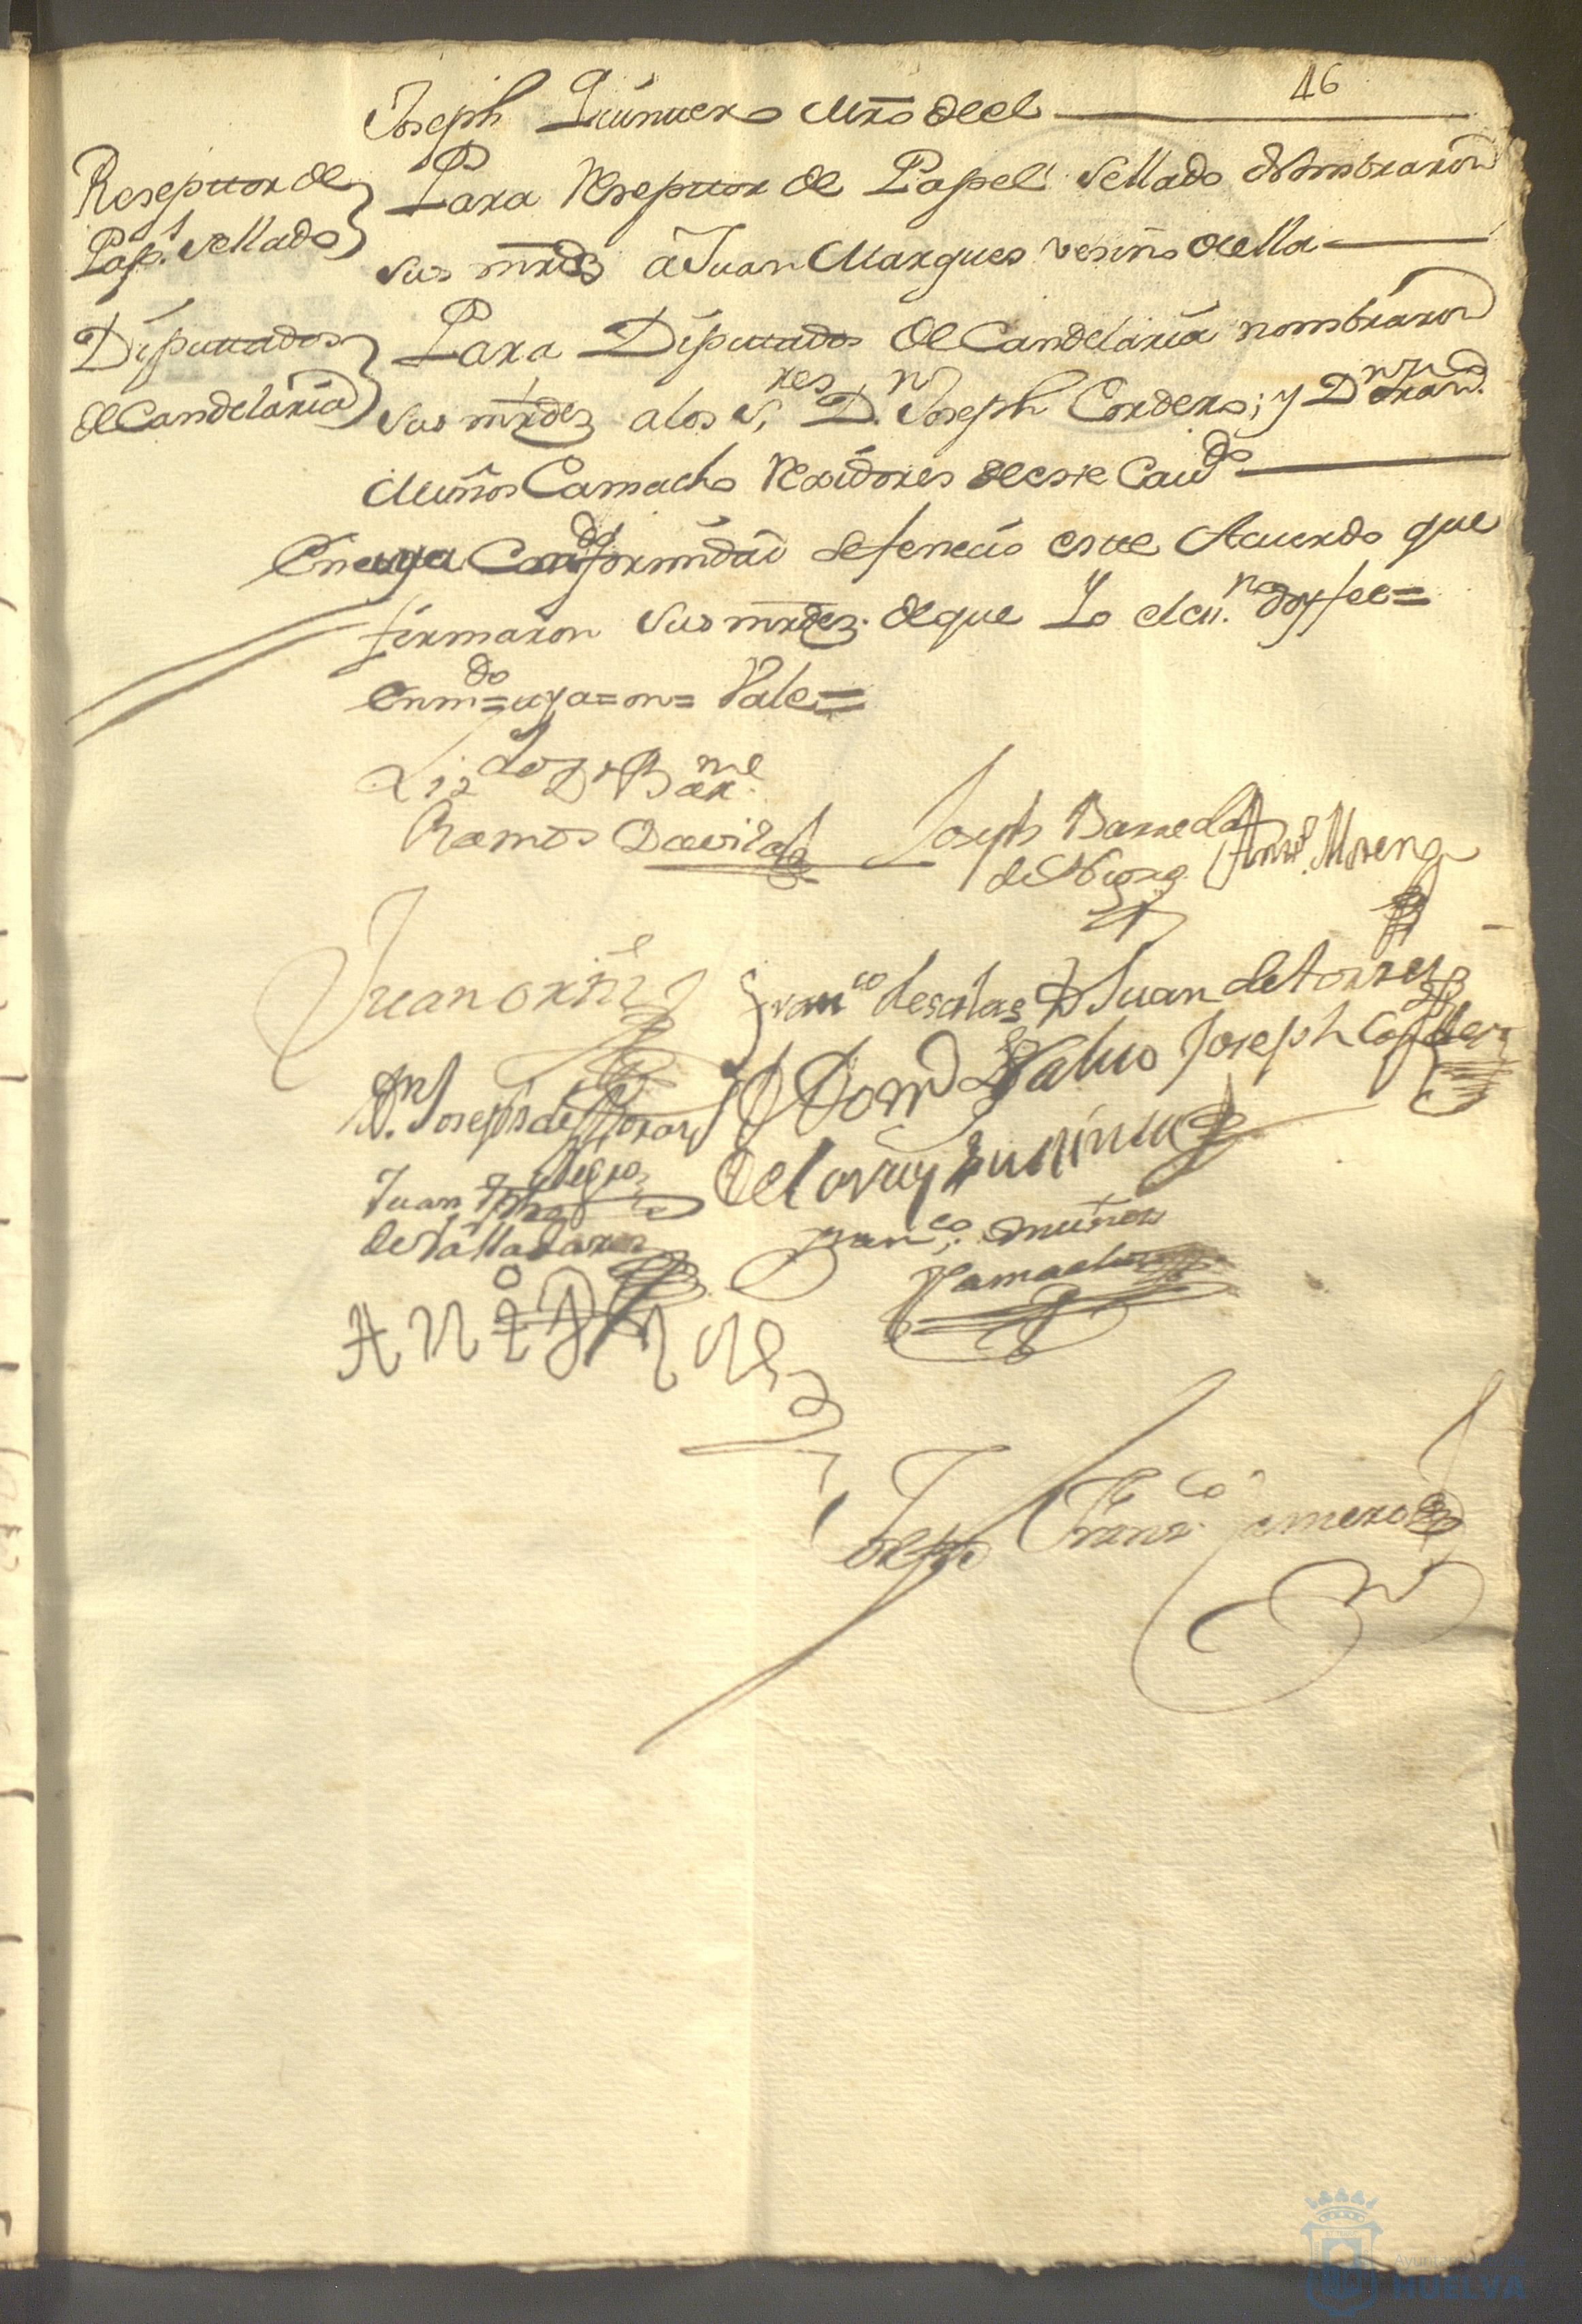 46
Joseph Quintero Mro del
Reseptor de
Pap.l sellado
Para Reseptor de Papel sellado Nombraron
sus mrdz â Juan Marques vesino della
Diputtados
de Candelaria
Para Diputtados de Candelaria nombraron
sus mrdez a los S.res D.n Joseph Cordero; y D.n Fran.co
Muños Camacho Rexidores de este Cavdo
En cuya Conformidad se fenecio este Acuerdo que
firmaron sus mrdez. de que Yo el cn.no doy fee=
Enmdo=uya=on= Vale=
Lizdo D. Barme
Ramos Davila
Joseph Barreda
de
Anto. Moreno
Juan ortiz
Franco de salas
Juan de torres
Dn. Joseph de
Joseph Cordero
Juan
de Valladares
Franco. Muños
Camacho
Joseph Franco. Romero
Ayuntamiento de
HUELVA